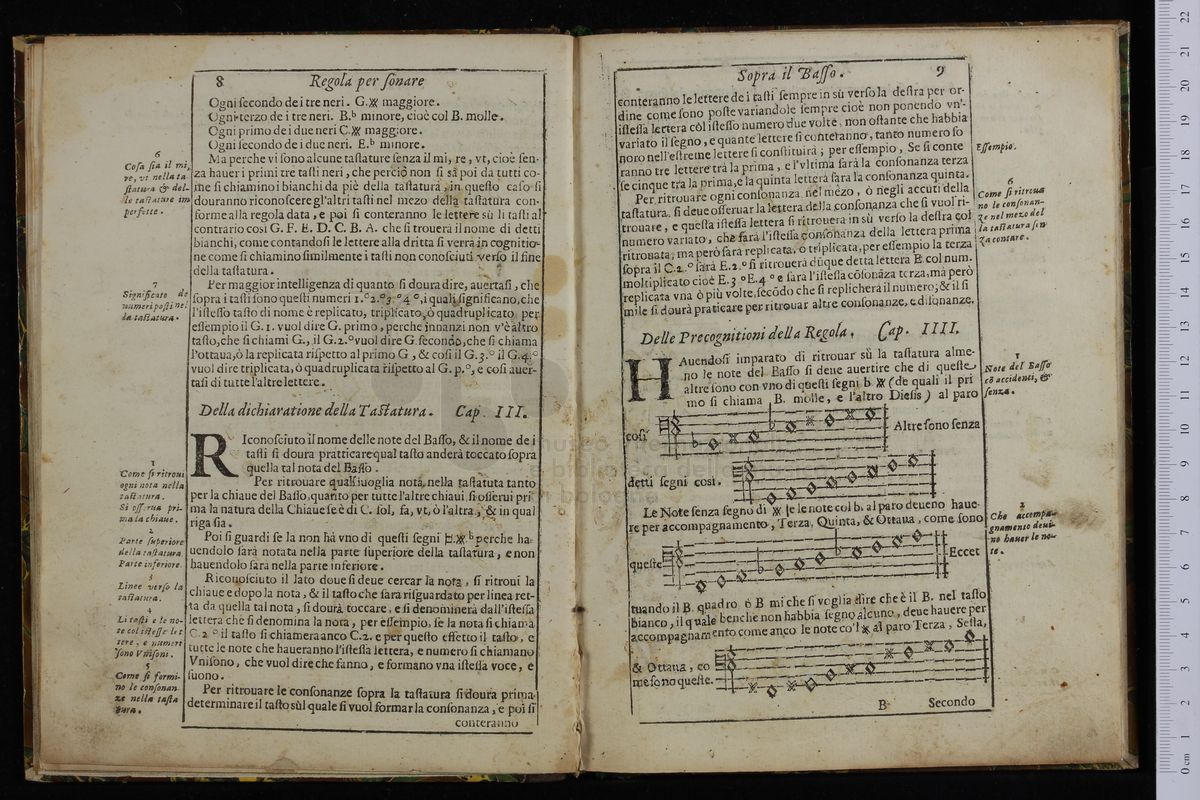 8 Regola per ſonare
Ogni ſecondo de i tre neri. G.𝄪 maggiore.
Ogni terzo de i tre neri. B.b minore, cioè col B. molle.
Ogni primo de i due neri C.𝄪 maggiore.
Ogni ſecondo de i due neri. E.b minore.
Ma perche vi ſono alcune taſtature ſenza il mi, re, vt, cioè ſen-
za hauer i primi tre taſti neri, che perciò non ſi sà poi da tutti co-
me ſi chiamino i bianchi da piè della taſtatura, in queſto caſo ſi
douranno riconoſcere gl'altri taſti nel mezo della taſtatura con-
forme alla regola data, e poi ſi conteranno le lettere sù li taſti al
contrario cosi G. F. E. D. C. B. A. che ſi trouerà il nome di detti
bianchi, come contandoſi le lettere alla dritta ſi verrà in cognitio-
ne come ſi chiamino ſimilmente i taſti non conoſciuti verſo il fine
della taſtatura.
Per maggior intelligenza di quanto ſi doura dire, auertaſi, che
ſopra i taſti ſono queſti numeri 1.º2.º3.º4º, i quali ſignificano, che
l'iſteſſo taſto di nome è replicato, triplicato, ò quadruplicato per
eſſempio il G. 1. vuol dire G. primo, perche innanzi non v'è altro
taſto, che ſi chiami G., il G.2.º vuol dire G ſecondo, che ſi chiama
l'ottaua, ò la replicata riſpetto al primo G, & coſi il G.3.º il G.4.º
vuol dire triplicata, ò quadruplicata riſpetto al G. p.º, e coſi auer-
taſi di tutte l'altre lettere.
Della dichiaratione della Taſtatura. Cap. III.
RIconoſciuto il nome delle note del Baſſo, & il nome de i
taſti ſi doura pratticare qual taſto anderà toccato ſopra
quella tal nota del Baſſo.
Per ritrouare qualſiuoglia nota, nella taſtatuta tanto
per la chiaue del Baſſo, quanto per tutte l'altre chiaui ſi oſſerui pri
ma la natura della Chiaue ſe è di C. ſol, fa, vt, ò l'altra, & in qual
riga ſia.
Poi ſi guardi ſe la non hà vno di queſti ſegni ♮.𝄪.b perche ha-
uendolo ſarà notata nella parte ſuperiore della taſtatura, e non
hauendolo ſarà nella parte inferiore.
Riconoſciuto il lato doue ſi deue cercar la nota, ſi ritroui la
chiaue e dopo la nota, & il taſto che ſarà riſguardato per linea ret-
ta da quella tal nota, ſi dourà toccare, e ſi denominerà dall'iſteſſa
lettera che ſi denomina la nota, per eſſempio, ſe la nota ſi chiama
C. 2 º il taſto ſi chiamerà anco C.2. e per queſto effetto il taſto, e
tutte le note che haueranno l'iſteſſa lettera, e numero ſi chiamano
Vniſono, che vuol dire che fanno, e formano vna iſteſſa voce, e
ſuono.
Per ritrouare le conſonanze ſopra la taſtatura ſi dourà prima
determinare il taſto sùl quale ſi vuol formar la conſonanza, e poi ſi
conteranno
6
Coſa ſia il mi,
re, vt nella ta
ſtatura & del-
le taſtature im
perfette.
7
Significato de
numeri poſti ne
la taſtatura.
1
Come ſi ritroui
ogni nota nella
taſtatura.
Si oſſerua pri-
ma la chiaue.
2
Parte ſuperiore
della taſtatura
Parte inferiore.
3
Linee verſo la
taſtatura.
4
Li taſti e le no-
te col iſteſſe let
tere, e numeri
ſono Vniſoni.
5
Come ſi formi-
no le conſonan-
ze nella taſta
tura.
Sopra il Baſſo. 9
conteranno le lettere de i taſti ſempre in sù verſo la deſtra per or-
dine come ſono poſte variandole ſempre cioè non ponendo vn'-
iſteſſa lettera còl iſteſſo numero due volte, non oſtante che habbia
variato il ſegno, e quante lettere ſi conteranno, tanto numero ſo
noro nell'eſtreme lettere ſi conſtituirà; per eſſempio, Se ſi conte
ranno tre lettere trà la prima, e l'vltima ſarà la conſonanza terza
ſe cinque tra la prima, e la quinta lettera ſara la conſonanza quinta.
Per ritrouare ogni conſonanza nel mezo, ò negli accuti della
taſtatura, ſi deue oſſeruar la lettera della conſonanza che ſi vuol ri-
trouare, e queſta iſteſſa lettera ſi ritrouera in sù verſo la deſtra col
numero variato, che ſarà l'iſteſſa conſonanza della lettera prima
ritrouata, ma però ſarà replicata, ò triplicata, per eſſempio la terza
ſopra il C.2.º ſarà E.2.º ſi ritrouerà dũque detta lettera E col num.
moltiplicato cioè E.3 ºE.4 º e ſarà l'iſteſſa cõſonãza terza, ma però
replicata vna ò più volte, ſecõdo che ſi replicherà il numero; & il ſi
mile ſi dourà praticare per ritrouar altre conſonanze, e diſonanze.
Delle Precognitioni della Regola. Cap. IIII.
HAuendoſi imparato di ritrouar sù la taſtatura alme-
no le note del Baſſo ſi deue auertire che di queſte
altre ſono con vno di queſti ſegni b 𝄪 (de quali il pri
mo ſi chiama B. molle, e l'altro Dieſis) al paro
coſi
Altre ſono ſenza
detti ſegni cosi.
Le Note ſenza ſegno di 𝄪 le le note col b. al paro deueno haue-
re per accompagnamento, Terza, Quinta, & Ottaua, come ſono
queſte
Eccet
tuando il B. quadro ò B mi che ſi voglia dire che è il B. nel taſto
bianco, il quale benche non habbia ſegno alcuno, deue hauere per
accompagnamento come anco le note co'l 𝄪 al paro Terza, Seſta,
& Ottaua, co
me ſono queſte.
B Secondo
Eſſempio.
6
Come ſi ritroua
no le conſonan-
ze nel mezo del
la taſtatura ſen
za contare.
1
Note del Baſſo
cõ accidenti, &
ſenza.
2
Che accompa-
gnamento deui-
no hauer le no-
te.
0 cm 1 2 3 4 5 6 7 8 9 10 11 12 13 14 15 16 17 18 19 20 21 22